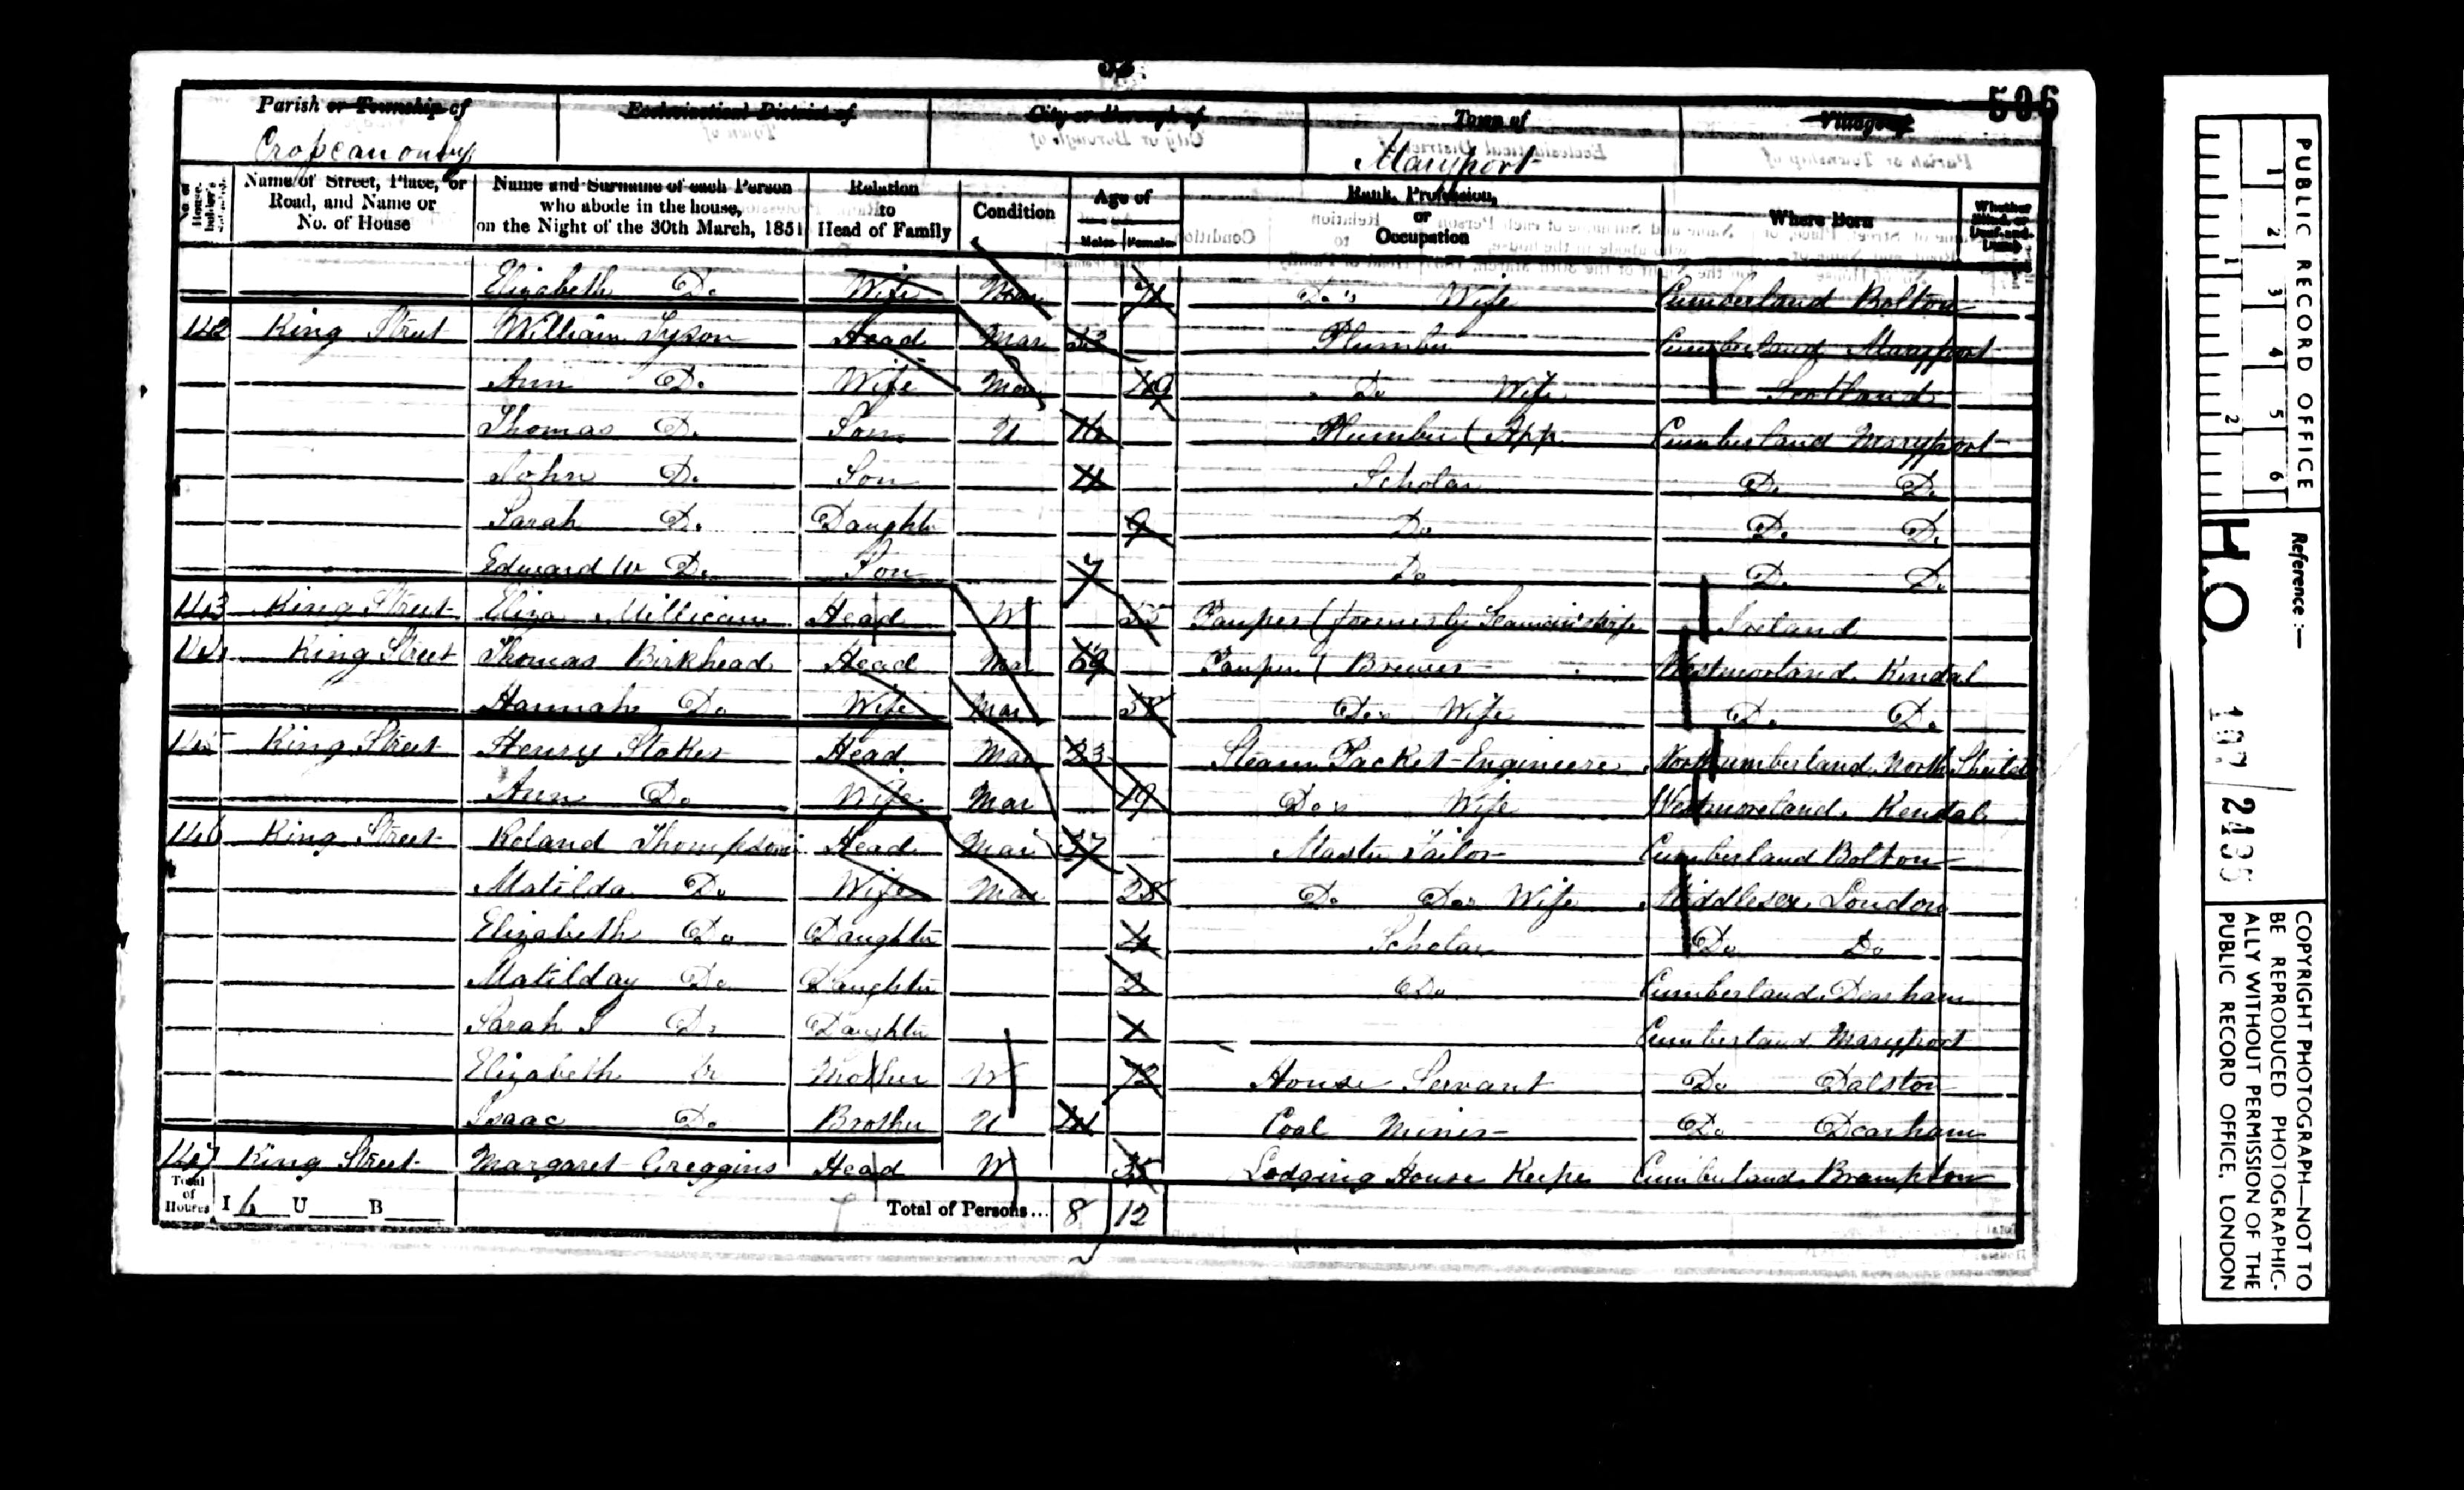 506
Parish or Township of Ecclesiastical District of City or Borough of Town of Village of
Cropcanonby Maryport
No. of House- Name of Street, Place, or Road, and Name or No. of House Name and Surname of each Person who abode in the house, on the Night of the 30th March, 1851 Relation to Head of Family Condition Age of Males Females Rank, Profession, or Occupation Where Born Whether Blind, or Deaf-and-Dumb
Elizabeth Do Wife Mar Do's Wife Cumberland Bolton
142 King Street William Tyson Head Mar 53 Plumber Cumberland Maryport
Ann Do Wife Mar 49 Do Wife Scotland
Thomas Do Son U 16 Plumber (App. Cumberland Maryport
John Do Son Scholar Do Do
Sarah Do Daughter 9 Do Do Do
Edward W Do Son 7 Do Do Do
143 King Street Eliza Millican Head W 55 Pauper (formerly Seaman's Wife Ireland
144 King Street Thomas Birkhead Head Mar 69 Pauper (Brewer Westmorland Kendal
Hannah Do Wife Mar 58 Do's Wife Do Do
145 King Street Henry Stokes Head Mar 23 Steam Packet Engineer Northumberland North Shields
Ann Do Wife Mar 19 Do's Wife Westmoreland Kendal
146 King Street Roland Thompson Head Mar 37 Master Tailor Cumberland Bolton
Matilda Do Wife Mar 28 Do Do's Wife Middlesex London
Elizabeth Do Daughter 4 Scholar Do Do
Matilday Do Daughter 2 Do Cumberland Dearham
Sarah J Do Daughter 1 Cumberland Maryport
Elizabeth Do Mother W 72 House Servant Do Dalston
Isaac Do Brother U Coal Miner Do Dearham
147 King Street Margaret Greggins Head W 35 Lodging House Keeper Cumberland Brampton
Total of Houses I 6 U B Total of Persons... 8 12
PUBLIC RECORD OFFICE
1 2 3 4 5 6
1 2
Reference :—
H.O. 107/2435
COPYRIGHT PHOTOGRAPH—NOT TO
BE REPRODUCED PHOTOGRAPHIC-
ALLY WITHOUT PERMISSION OF THE
PUBLIC RECORD OFFICE, LONDON